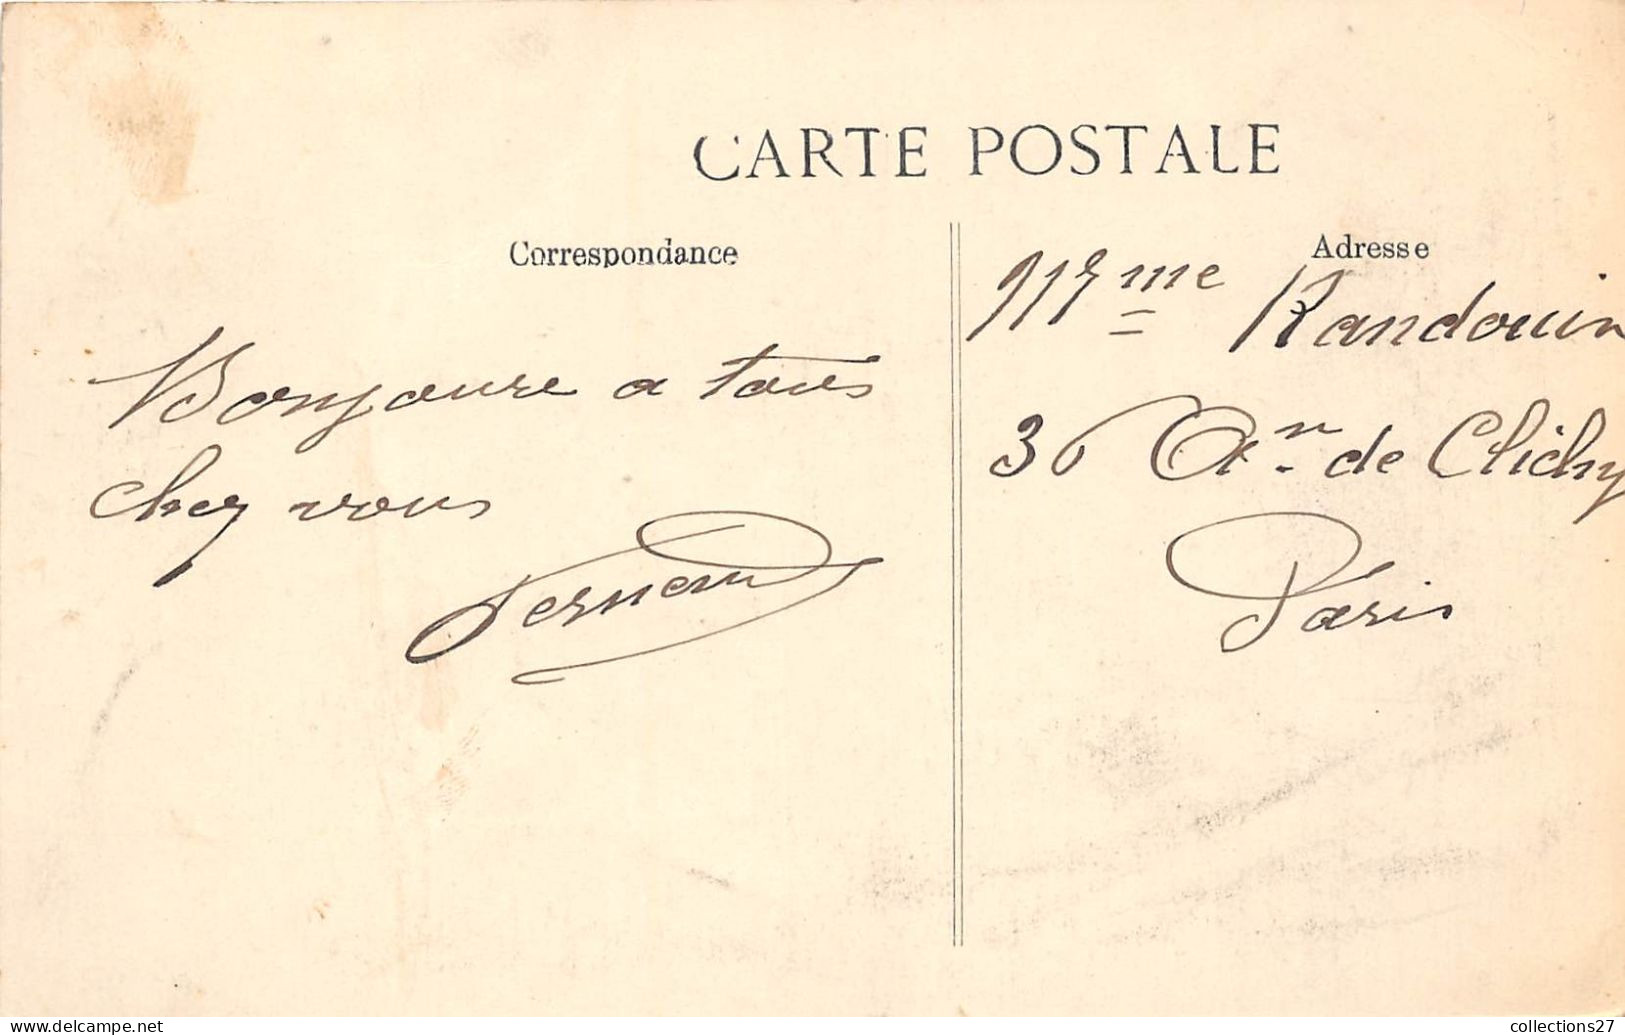 CARTE POSTALE
Correspondance
Bonjoure a tous
chez vous
Fernand
Adresse
Mme Randouin
36 Av. de Clichy
Paris
collections27